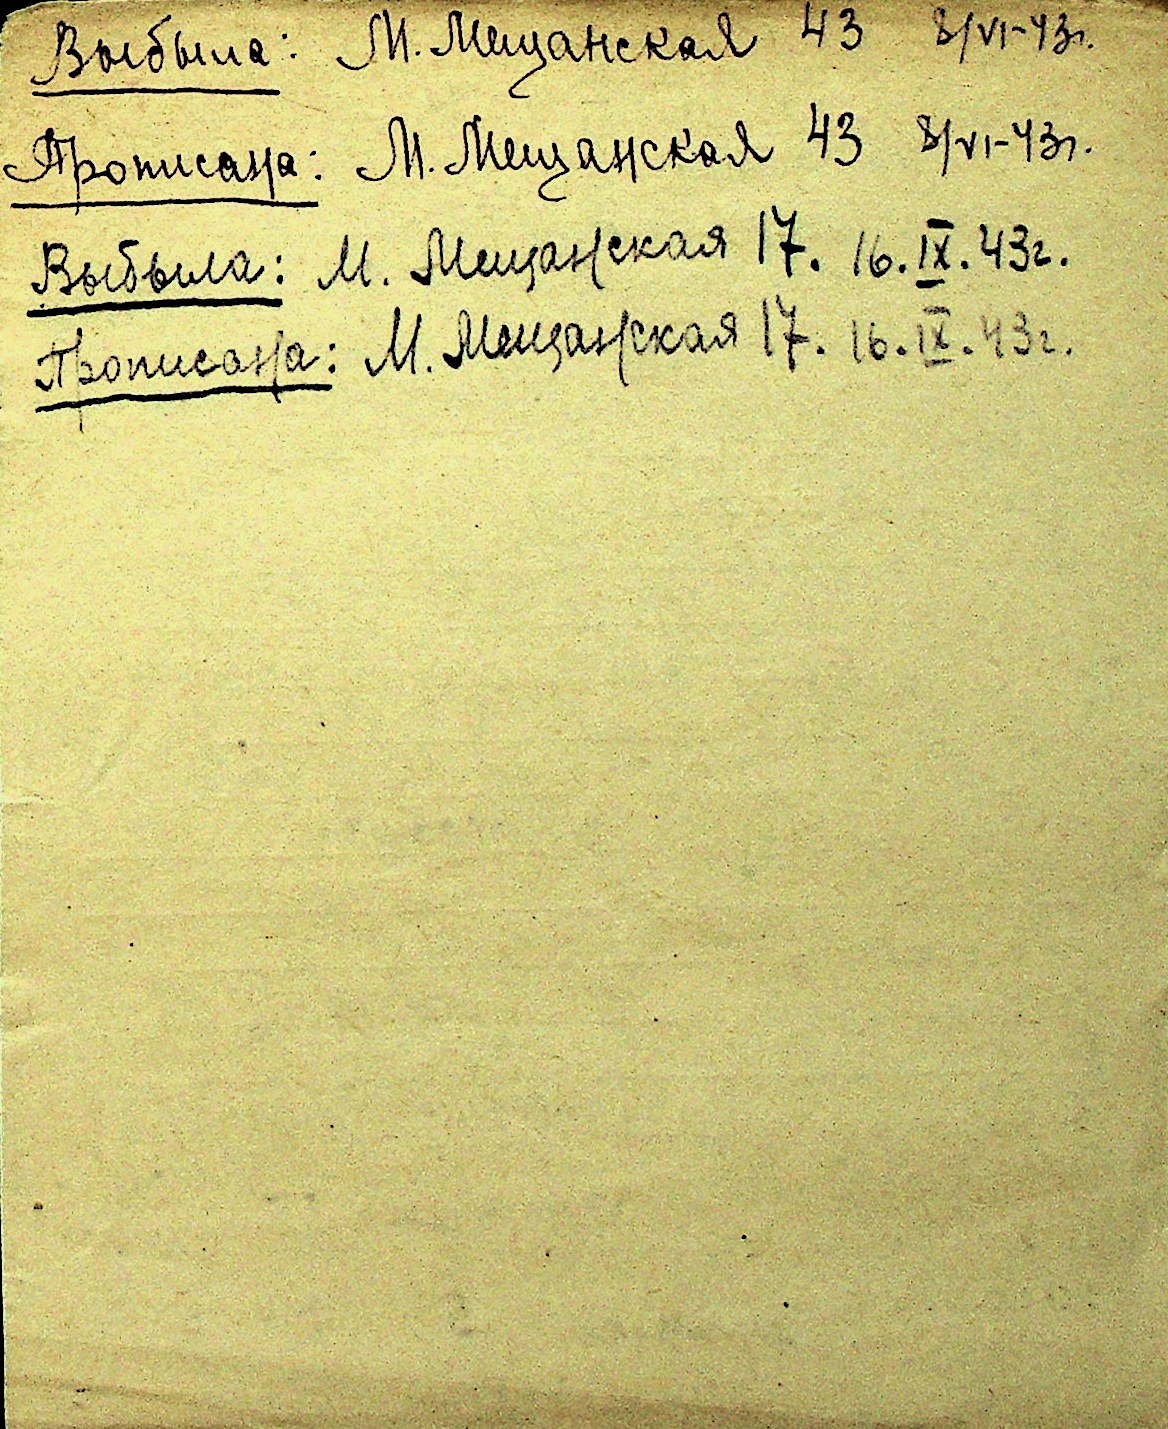 Выбыла: М. Мещанская 43 8/VI-43г.
Прописана: М. Мещанская 43 8/VI-43г.
Выбыла: М. Мещанская 17. 16.IX.43г.
Прописана: М. Мещанская 17. 16.IX.43г.